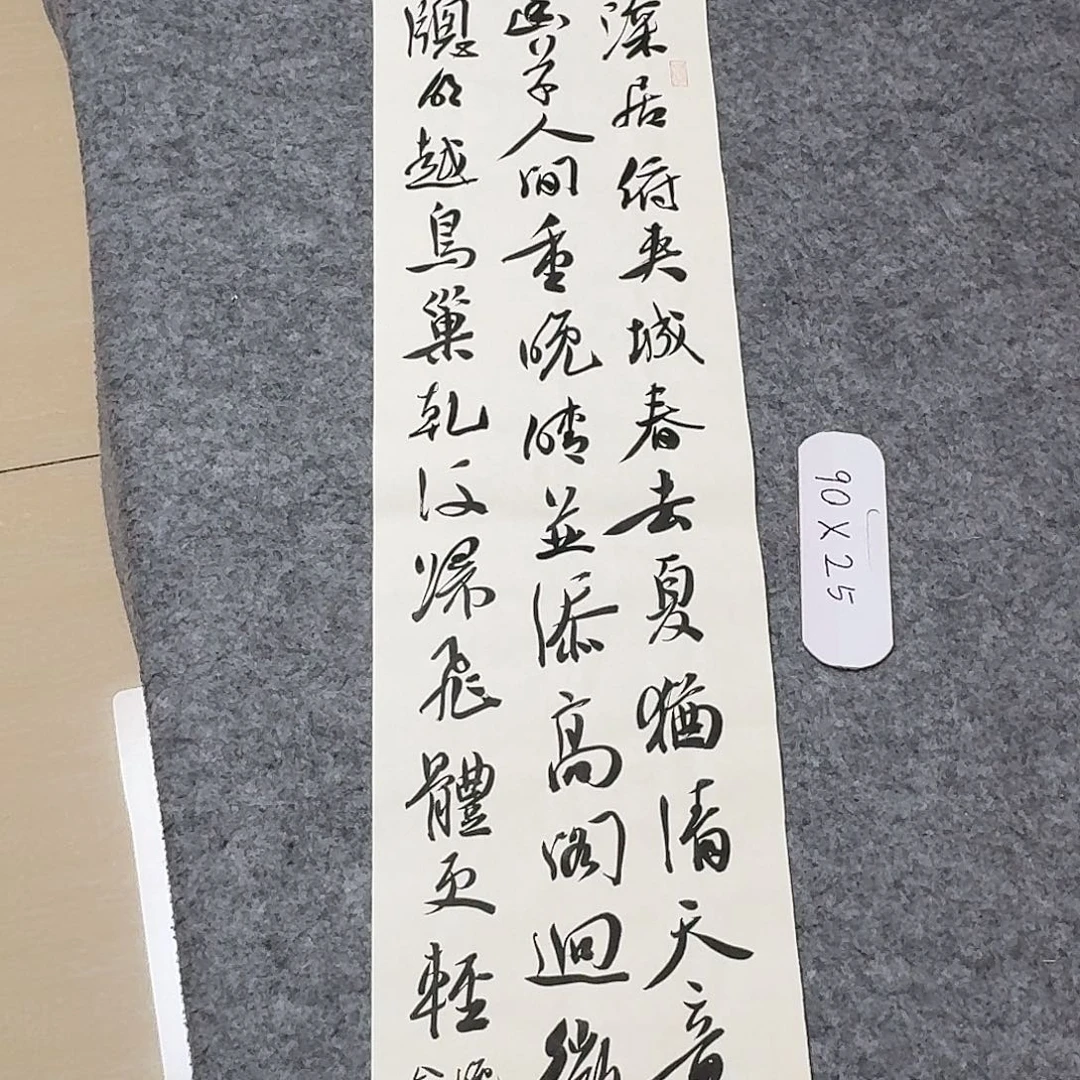 深居俯夾城春去夏猶清天意
幽草人間重晚晴並添高閣迥微
牕明越鳥巢乾後歸飛體更輕
90X25